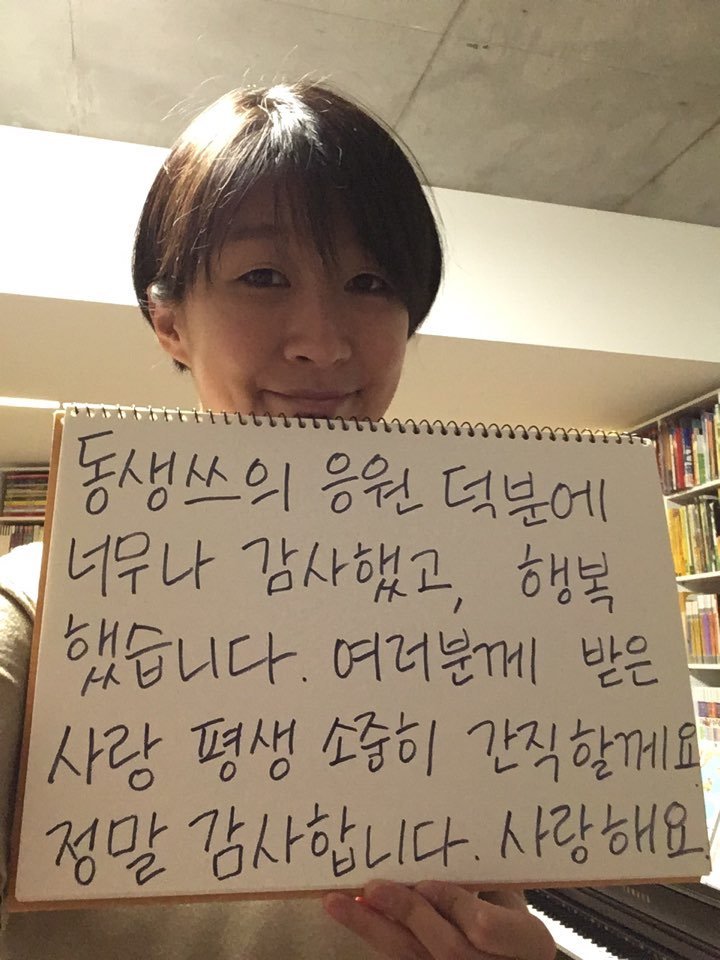 동생쓰의 응원 덕분에
너무나 감사했고, 행복
했습니다. 여러분께 받은
사랑 평생 소중히 간직할께요
정말 감사합니다. 사랑해요.